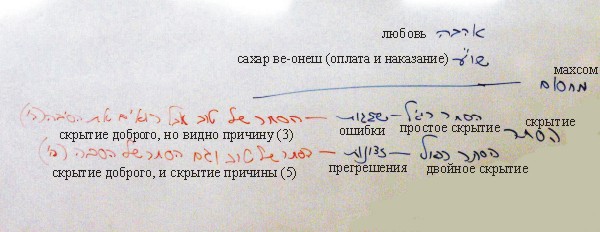 любовь אהבה
сахар ве-онеш (оплата и наказание) שו"ע
махсом
מחסום
הסתר רגיל – שגגות – הסתר של טוב אבל רואים את הסיבה
скрытие доброго, но видно причину (3) ошибки простое скрытие скрытие
הסתר
הסתר כפול – זדונות – הסתר של טוב וגם הסתר של הסבה
скрытие доброго, и скрытие причины (5) прегрешения двойное скрытие